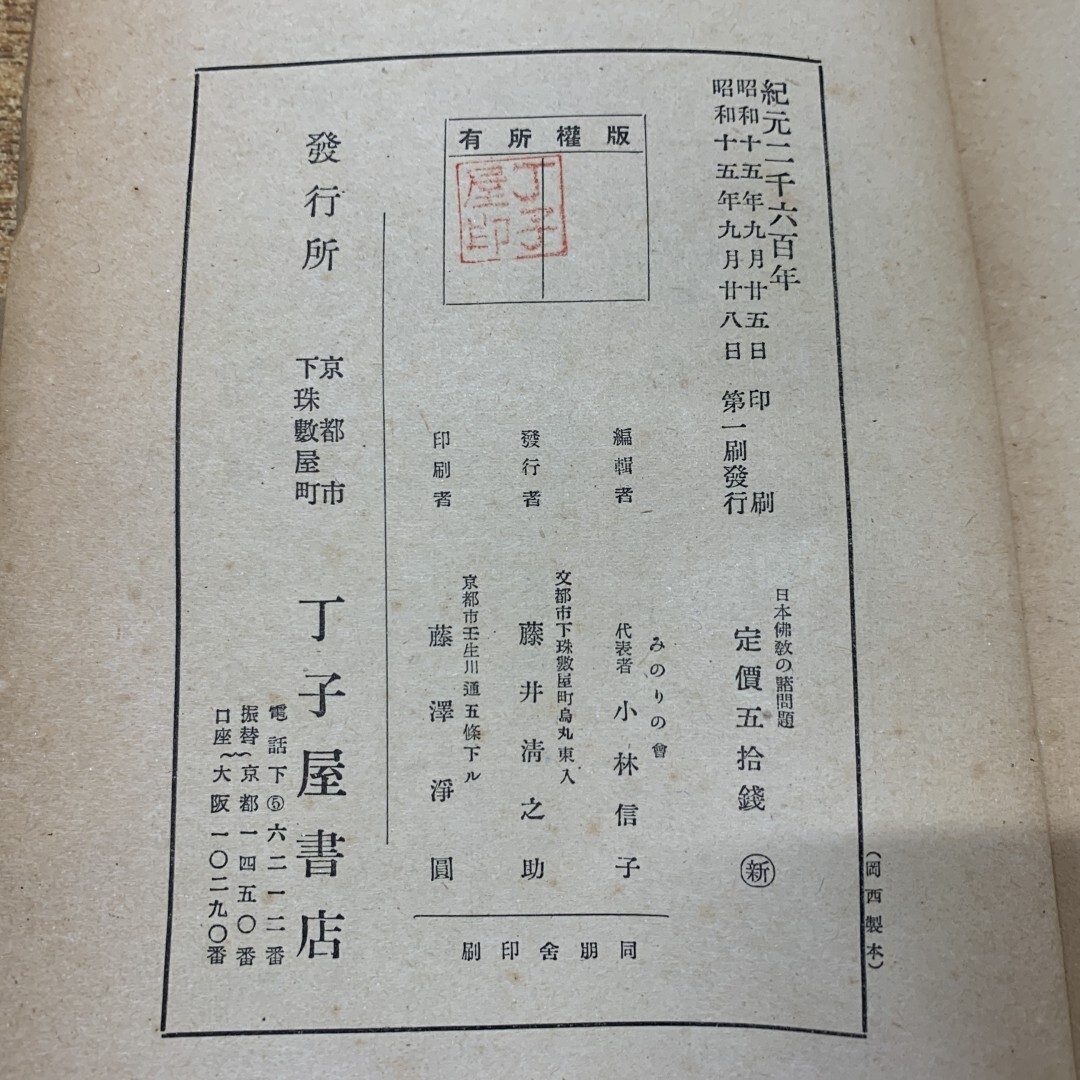 紀元二千六百年
昭和十五年九月廿五日 印刷
昭和十五年九月廿八日 第一刷發行
日本佛敎の諸問題
定價五拾錢 ㊟新
版權所有
丁子
屋印
編輯者
みのりの會
代表者 小林信子
發行者
文都市下珠數屋町烏丸東入
藤井淸之助
印刷者
京都市壬生川通五條下ル
藤澤淨圓
同朋舍印刷
發行所
京都市
下珠數屋町
丁子屋書店
電話下⑤六二一二番
振替 京都一四五〇番
口座 大阪一〇二九〇番
(岡西製本)